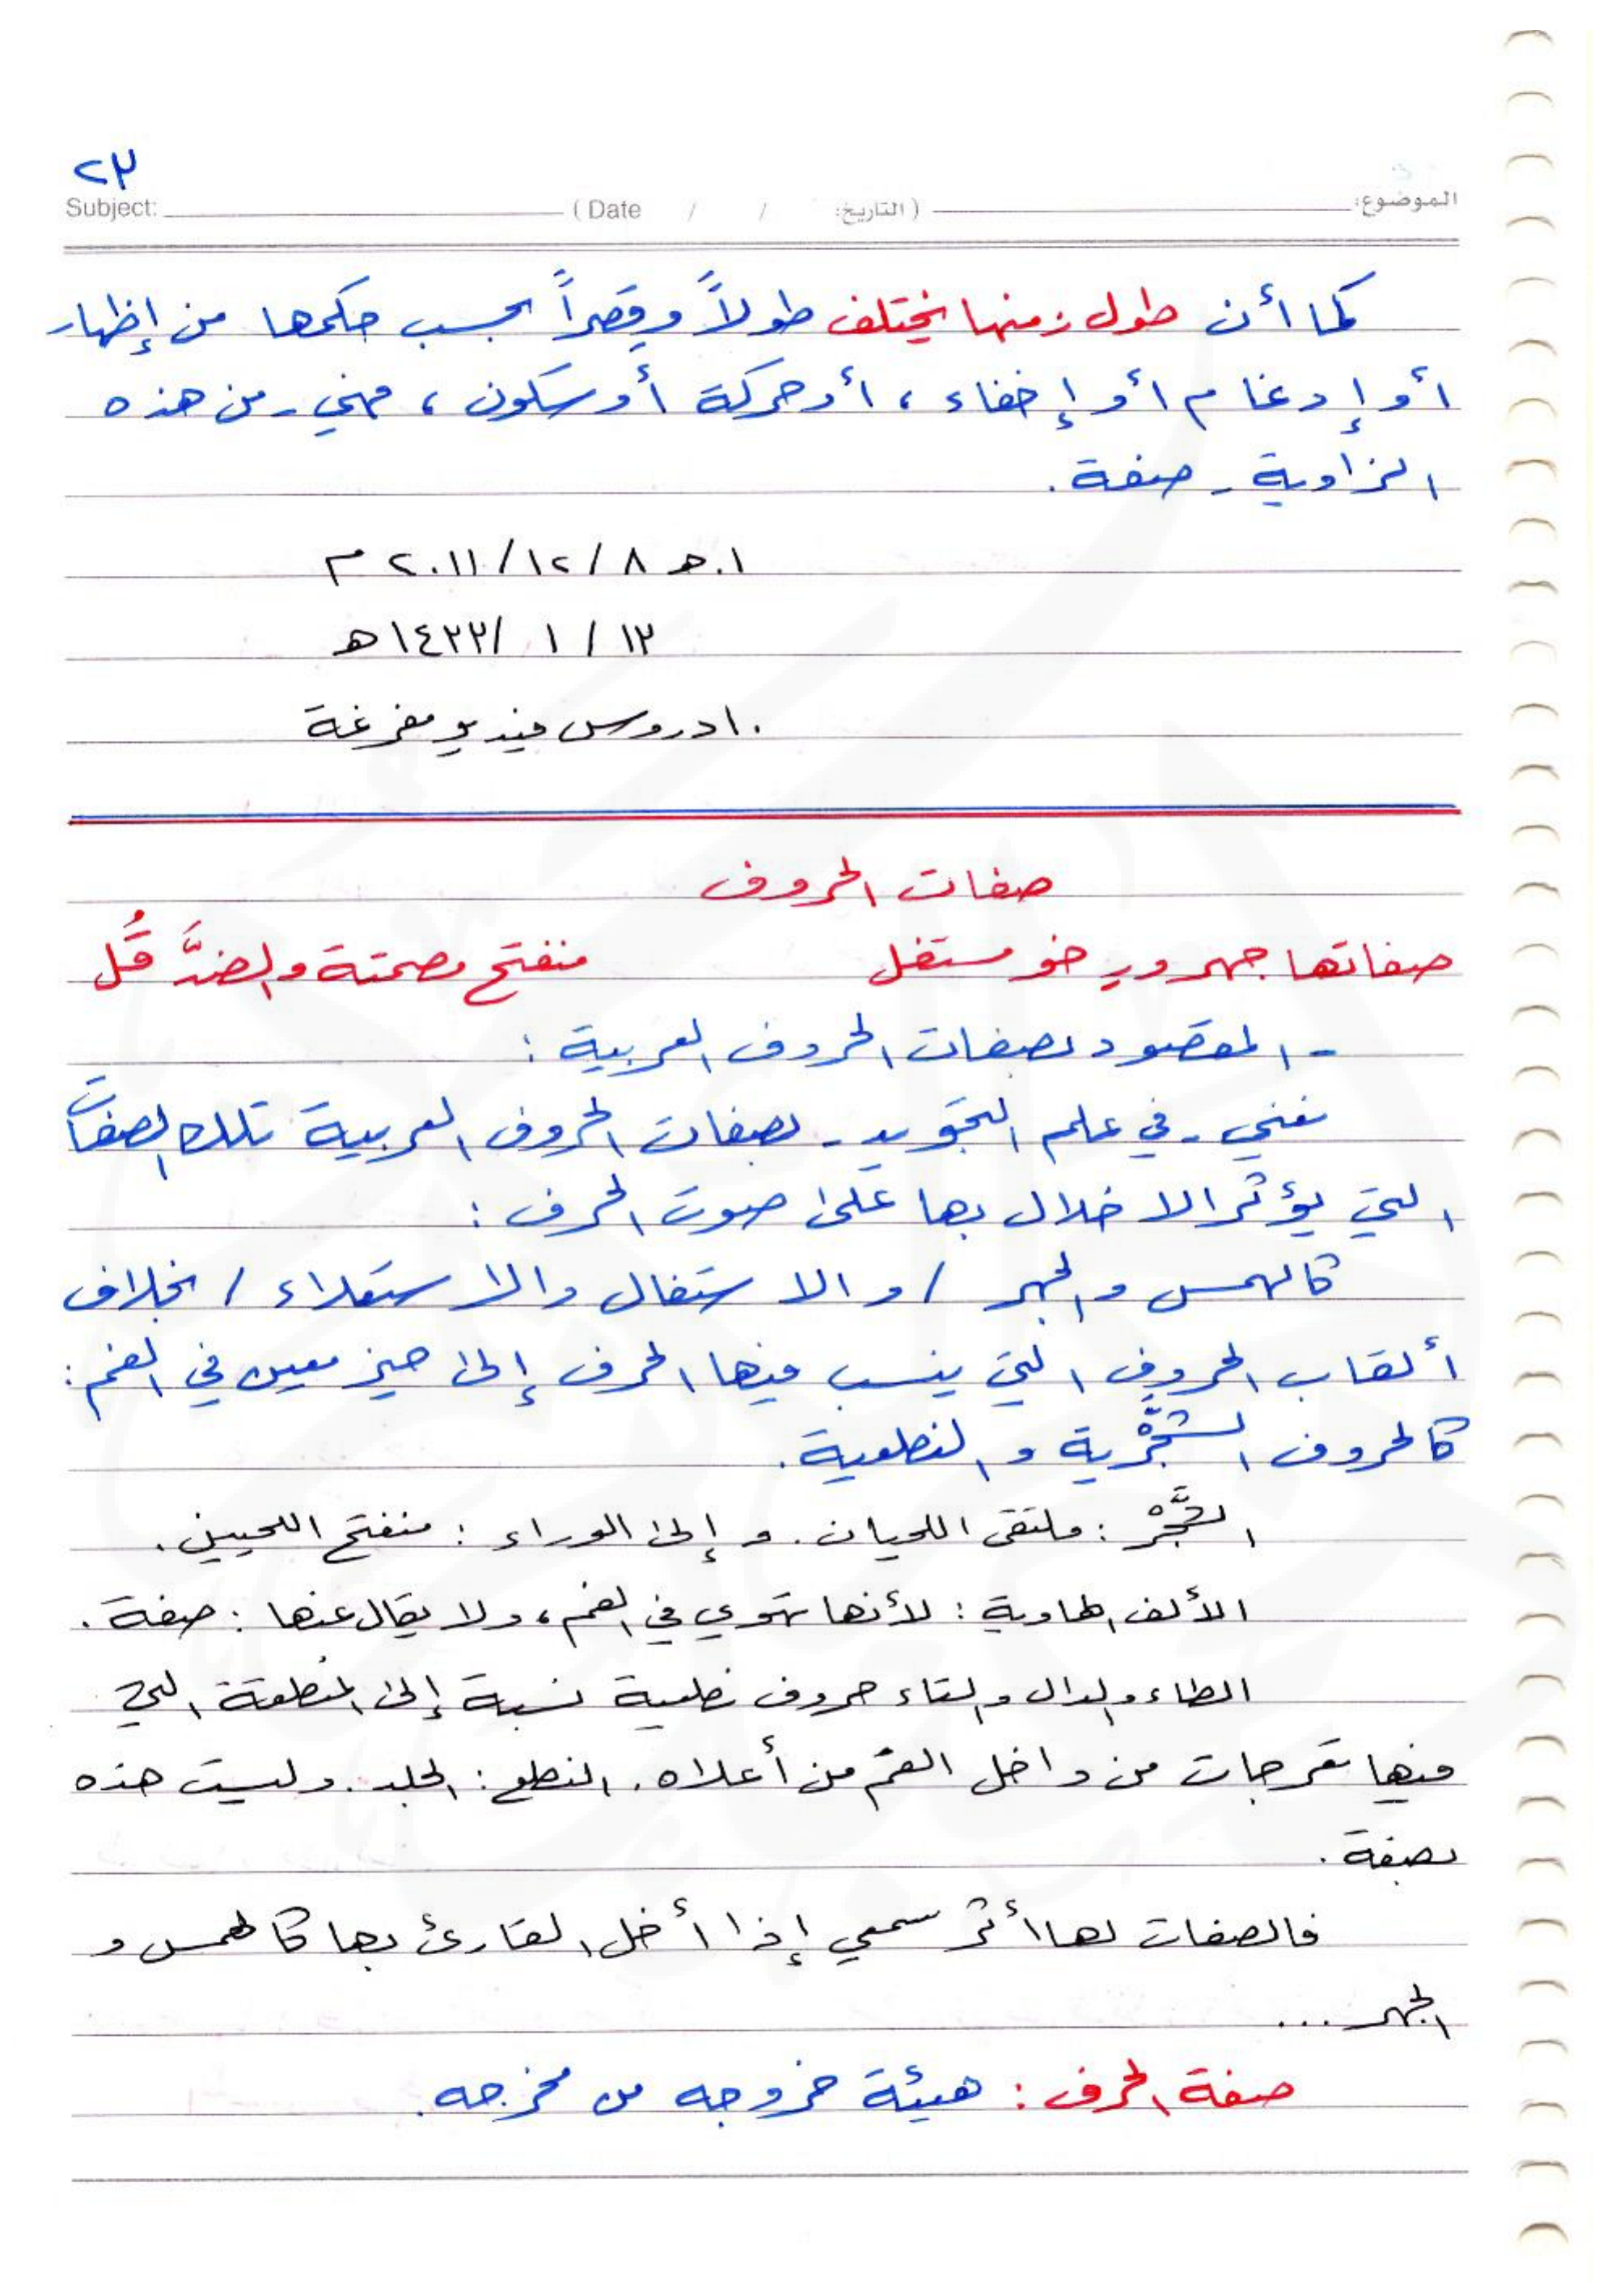 ٢٣
الموضوع: (التاريخ: / / Date) Subject:
كما أن طول زمنها يختلف طولاً وقصراً بحسب حكمها من إظهار
أو إدغام أو إخفاء ، أو حركة أو سكون ، فهي - من هذه
الزاوية - صفة .
ا.هـ ٨ / ١٢ / ٢٠١١ م
١٣ / ١ / ١٤٣٣ هـ
١٠ دروس فيديو مفرغة
صفات الحروف
صفاتها جهر ورخو مستفل منفتح مصمتة والضدَّ قُل
- المقصود بصفات الحروف العربية :
نعني - في علم التجويد - بصفات الحروف العربية تلك الصفاتَ
التي يؤثر الاخلال بها على صوت الحرف :
كالهمس والجهر / والاستفال والاستعلاء / بخلاف
ألقاب الحروف التي ينسب فيها الحرف إلى حيز معين في الفم :
كالحروف الشَّجْرية والنطعية .
الشَّجْر : ملتقى اللحيان . و إلى الوراء : منفتح اللحيين .
الألف الهاوية : لأنها تهوي في الفم ، ولا يقال عنها : صفة .
الطاء والدال والتاء حروف نطعية نسبة إلى المنطقة التي
فيها تعرجات من داخل الفم من أعلاه . النطع : الجلد . وليست هذه
بصفة .
فالصفات لها أثر سمعي إذا أخل القارئ بها كالهمس و
الجهر ...
صفة الحرف : هيئة خروجه من مخرجه .